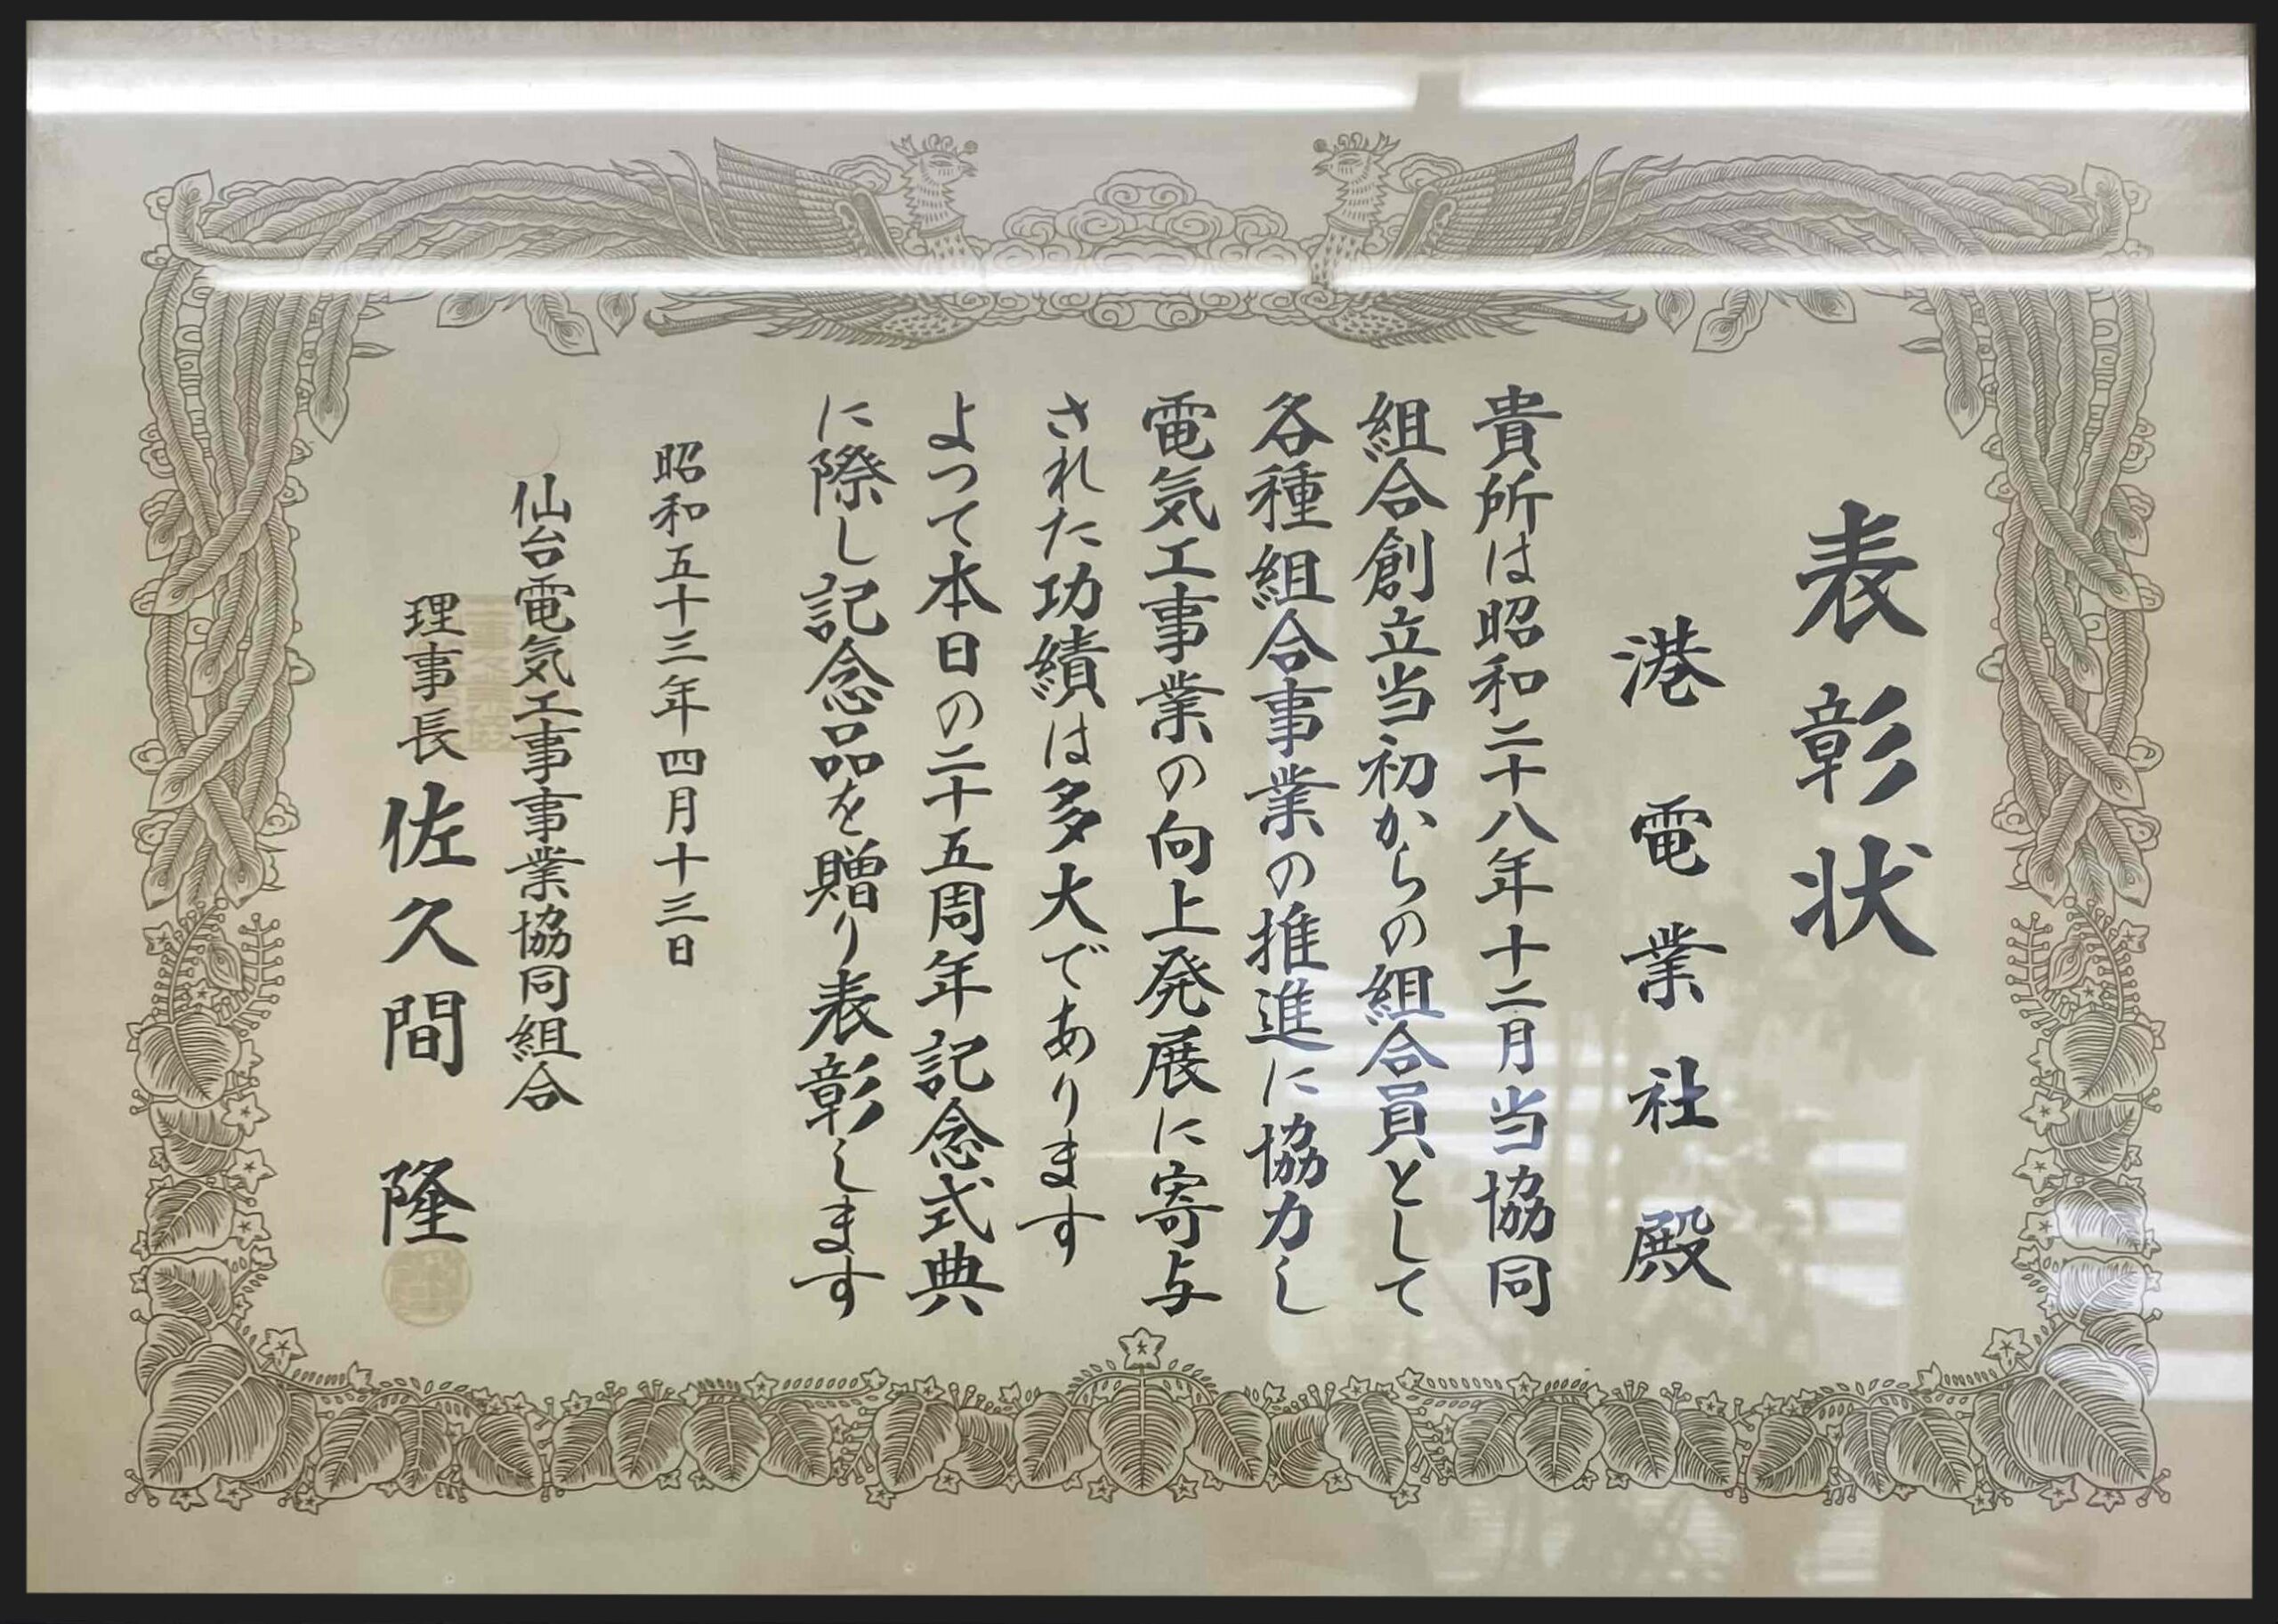 表彰状
港電業社殿
貴所は昭和二十八年十二月当協同
組合創立当初からの組合員として
各種組合事業の推進に協力し
電気工事業の向上発展に寄与
された功績は多大であります
よつて本日の二十五周年記念式典
に際し記念品を贈り表彰します
昭和五十三年四月十三日
仙台電気工事事業協同組合
理事長佐久間隆